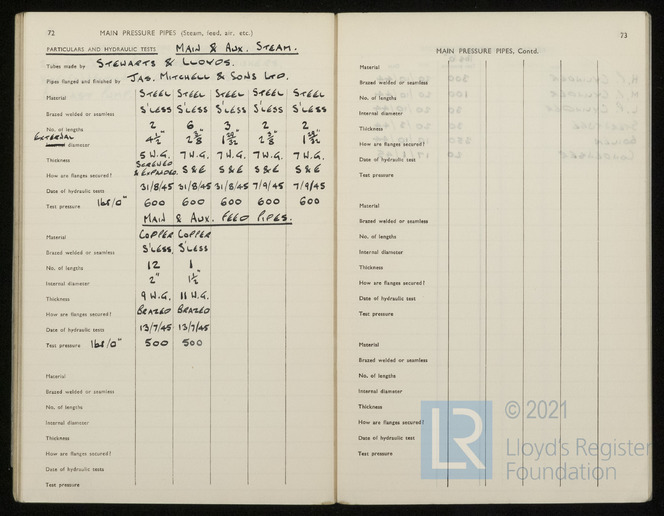 72 MAIN PRESSURE PIPES (Steam, feed, air, etc.)
PARTICULARS AND HYDRAULIC TESTS MAIN & AUX. STEAM.
Tubes made by STEWARTS & LLOYDS.
Pipes flanged and finished by JAS. MITCHELL & SONS LTD.
Material STEEL STEEL STEEL STEEL STEEL
Brazed welded or seamless S'LESS S'LESS S'LESS S'LESS S'LESS
No. of lengths 2 6 3 2 2
EXTERNAL diameter 4½" 2⅜" 1 29/32" 2⅜" 1 29/32"
Thickness 5 W.G. 7 W.G. 7 W.G. 7 W.G. 7 W.G.
How are flanges secured? SCREWED & EXPANDED. S&E S&E S&E S&E
Date of hydraulic tests 31/8/45 31/8/45 31/8/45 7/9/45 7/9/45
Test pressure lbs/□" 600 600 600 600 600
MAIN & AUX. FEED PIPES.
Material COPPER COPPER
Brazed welded or seamless S'LESS. S'LESS.
No. of lengths 12 1
Internal diameter 2" 1½"
Thickness 9 W.G. 11 W.G.
How are flanges secured? BRAZED BRAZED
Date of hydraulic tests 13/7/45 13/7/45
Test pressure lbs/□" 500 500
Material
Brazed welded or seamless
No. of lengths
Internal diameter
Thickness
How are flanges secured?
Date of hydraulic tests
Test pressure
73
MAIN PRESSURE PIPES, Contd.
Material
Brazed welded or seamless
No. of lengths
Internal diameter
Thickness
How are flanges secured?
Date of hydraulic test
Test pressure
Material
Brazed welded or seamless
No. of lengths
Internal diameter
Thickness
How are flanges secured?
Date of hydraulic test
Test pressure
Material
Brazed welded or seamless
No. of lengths
Internal diameter
Thickness
How are flanges secured?
Date of hydraulic test
Test pressure
LR © 2021
Lloyd's Register
Foundation